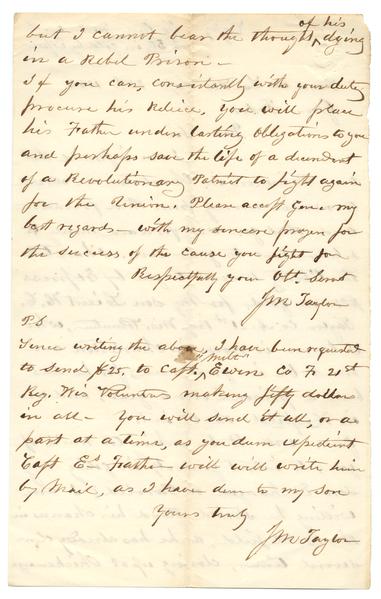 of his
but I cannot bear the thought ^ dying
in a Rebel Prison -
If you can, consistantly with your duty
procure his Release, you will place
his Father under lasting obligations to you
and perhaps save the life of a decendent
of a Revolutionary Patriot to fight again
for the Union. Please accept Gen. my
best regards - with my sincere prayer for
the success of the cause you fight for
Respectfully your Obt. Servt
J M Taylor
P.S
Since writing the above, I have been requested
to send $25, to Capt. ^ Ewen Co F. 21st
Reg. Wis Voluntees making fifty dollars
in all - You will send it all, or a
part at a time, as you deem expedient
Capt Es Father will will write him
by Mail, as I have done to my son
Yours truly
J M Taylor